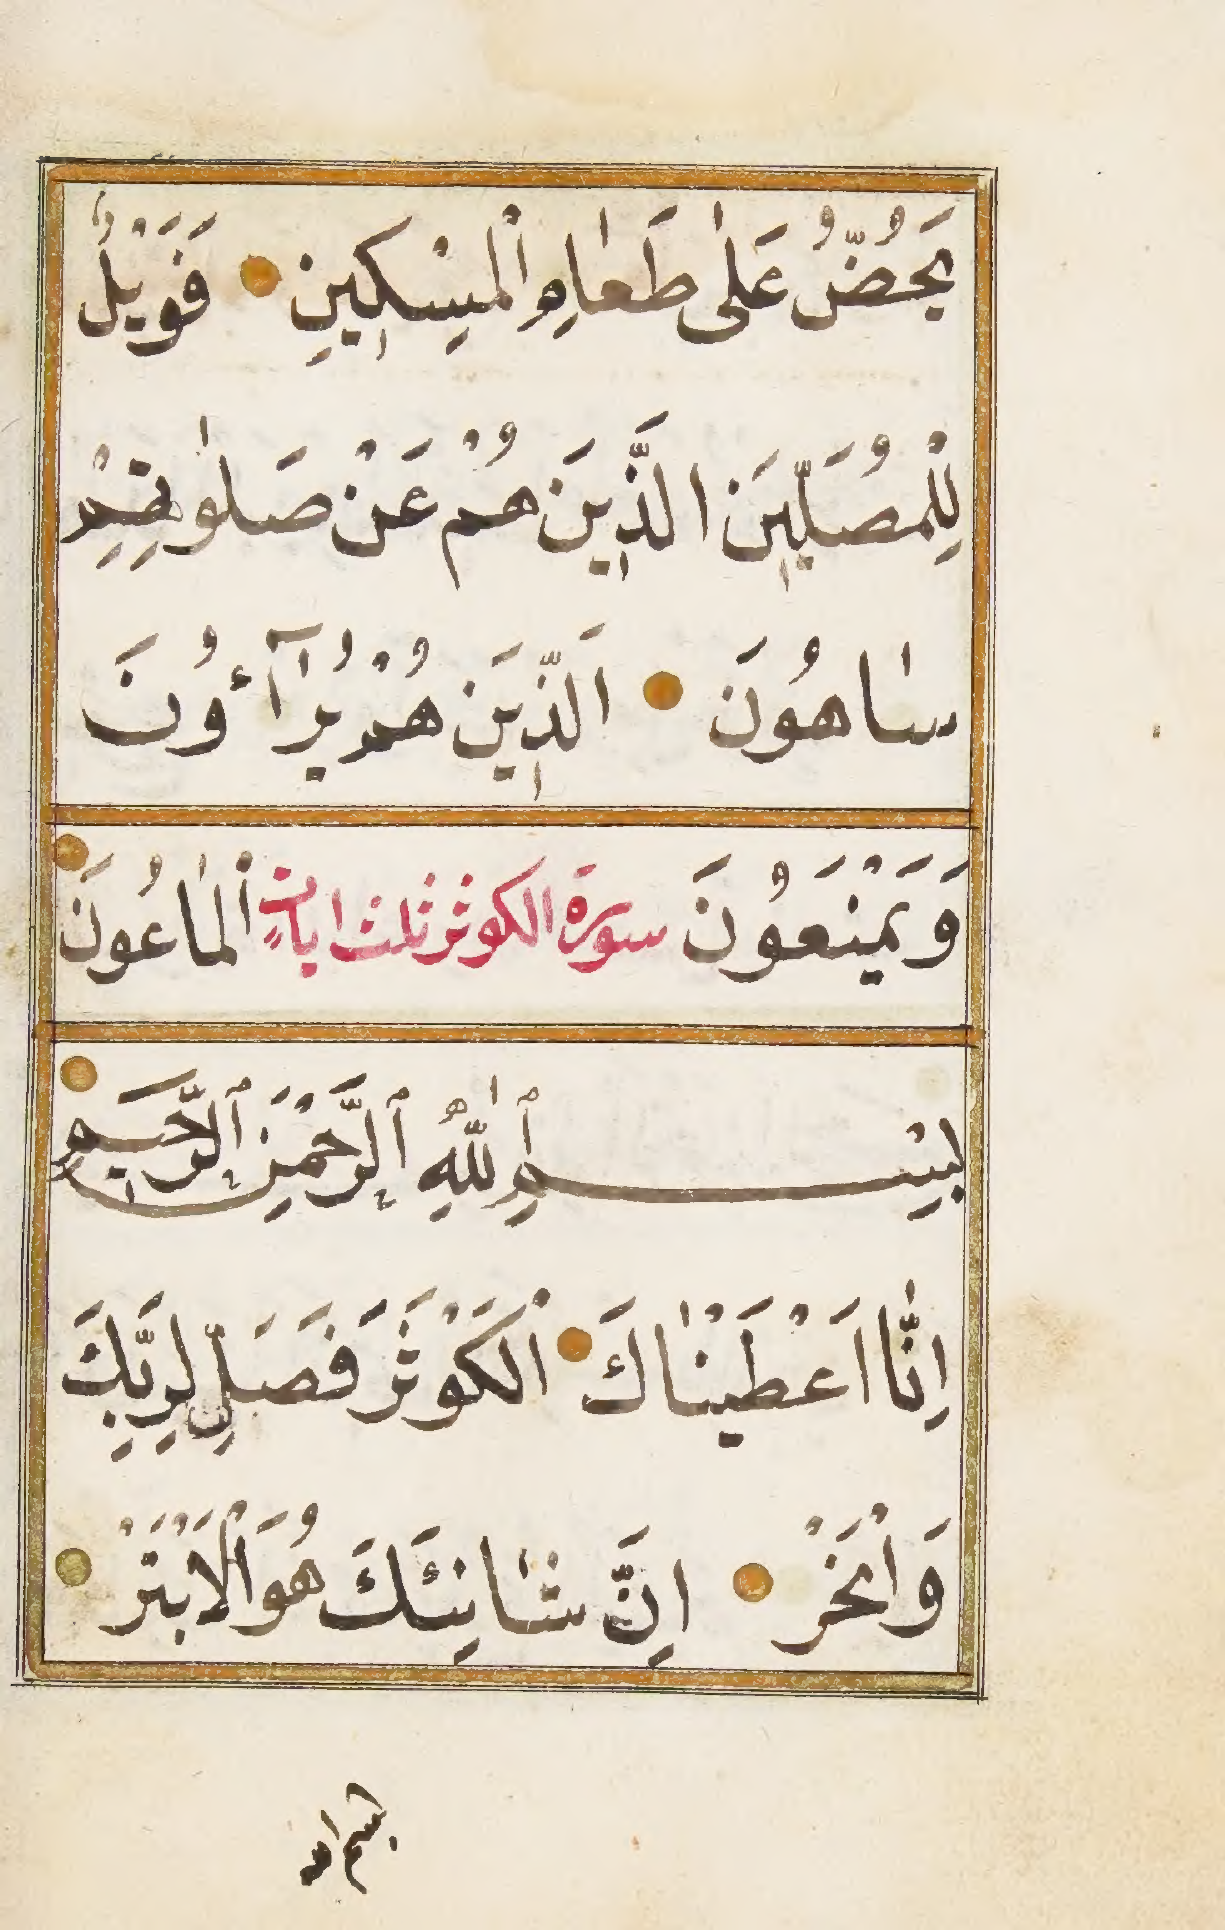 يَحُضُّ عَلٰى طَعَامِ الْمِسْكِينِ فَوَيْلٌ
لِلْمُصَلِّينَ الَّذِينَ هُمْ عَنْ صَلٰوتِهِمْ
سَاهُونَ اَلَّذِينَ هُمْ يُرَآؤُنَ
وَيَمْنَعُونَ سورة الكوثر ثلث ايات الْمَاعُونَ
بِسْمِ اللّٰهِ الرَّحْمٰنِ الرَّحِيمِ
اِنَّا اَعْطَيْنَاكَ الْكَوْثَرَ فَصَلِّ لِرَبِّكَ
وَانْحَرْ اِنَّ شَانِئَكَ هُوَ الْاَبْتَرُ
بسم الله